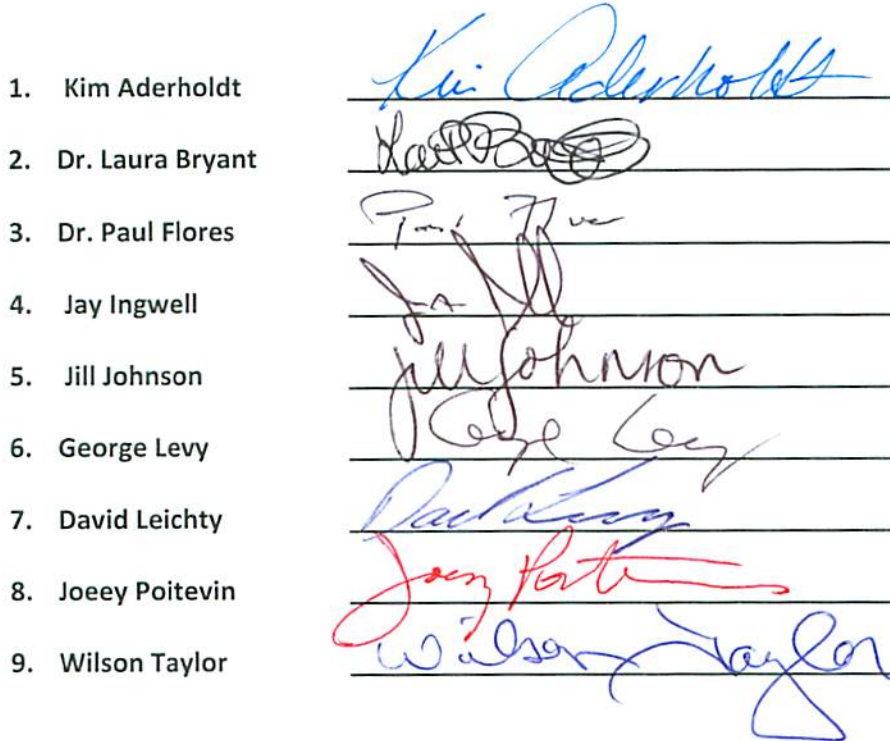 1. Kim Aderholdt Kim Aderholdt
2. Dr. Laura Bryant
3. Dr. Paul Flores
4. Jay Ingwell
5. Jill Johnson Jill Johnson
6. George Levy George Levy
7. David Leichty
8. Joeey Poitevin Joey
9. Wilson Taylor Wilson Taylor